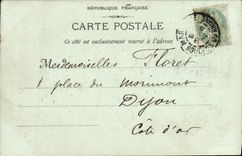 RÉPUBLIQUE FRANÇAISE
CARTE POSTALE
Ce côté est exclusivement réservé à l'adresse
Mesdemoiselles Floret
1 place du morimont
Dijon
Côte d'or